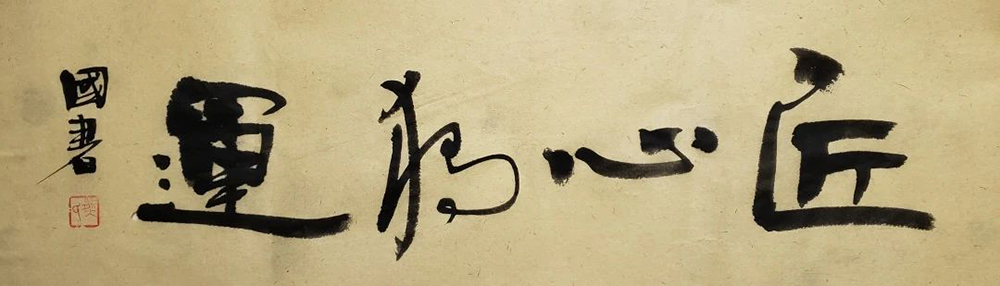 匠心獨運
國書